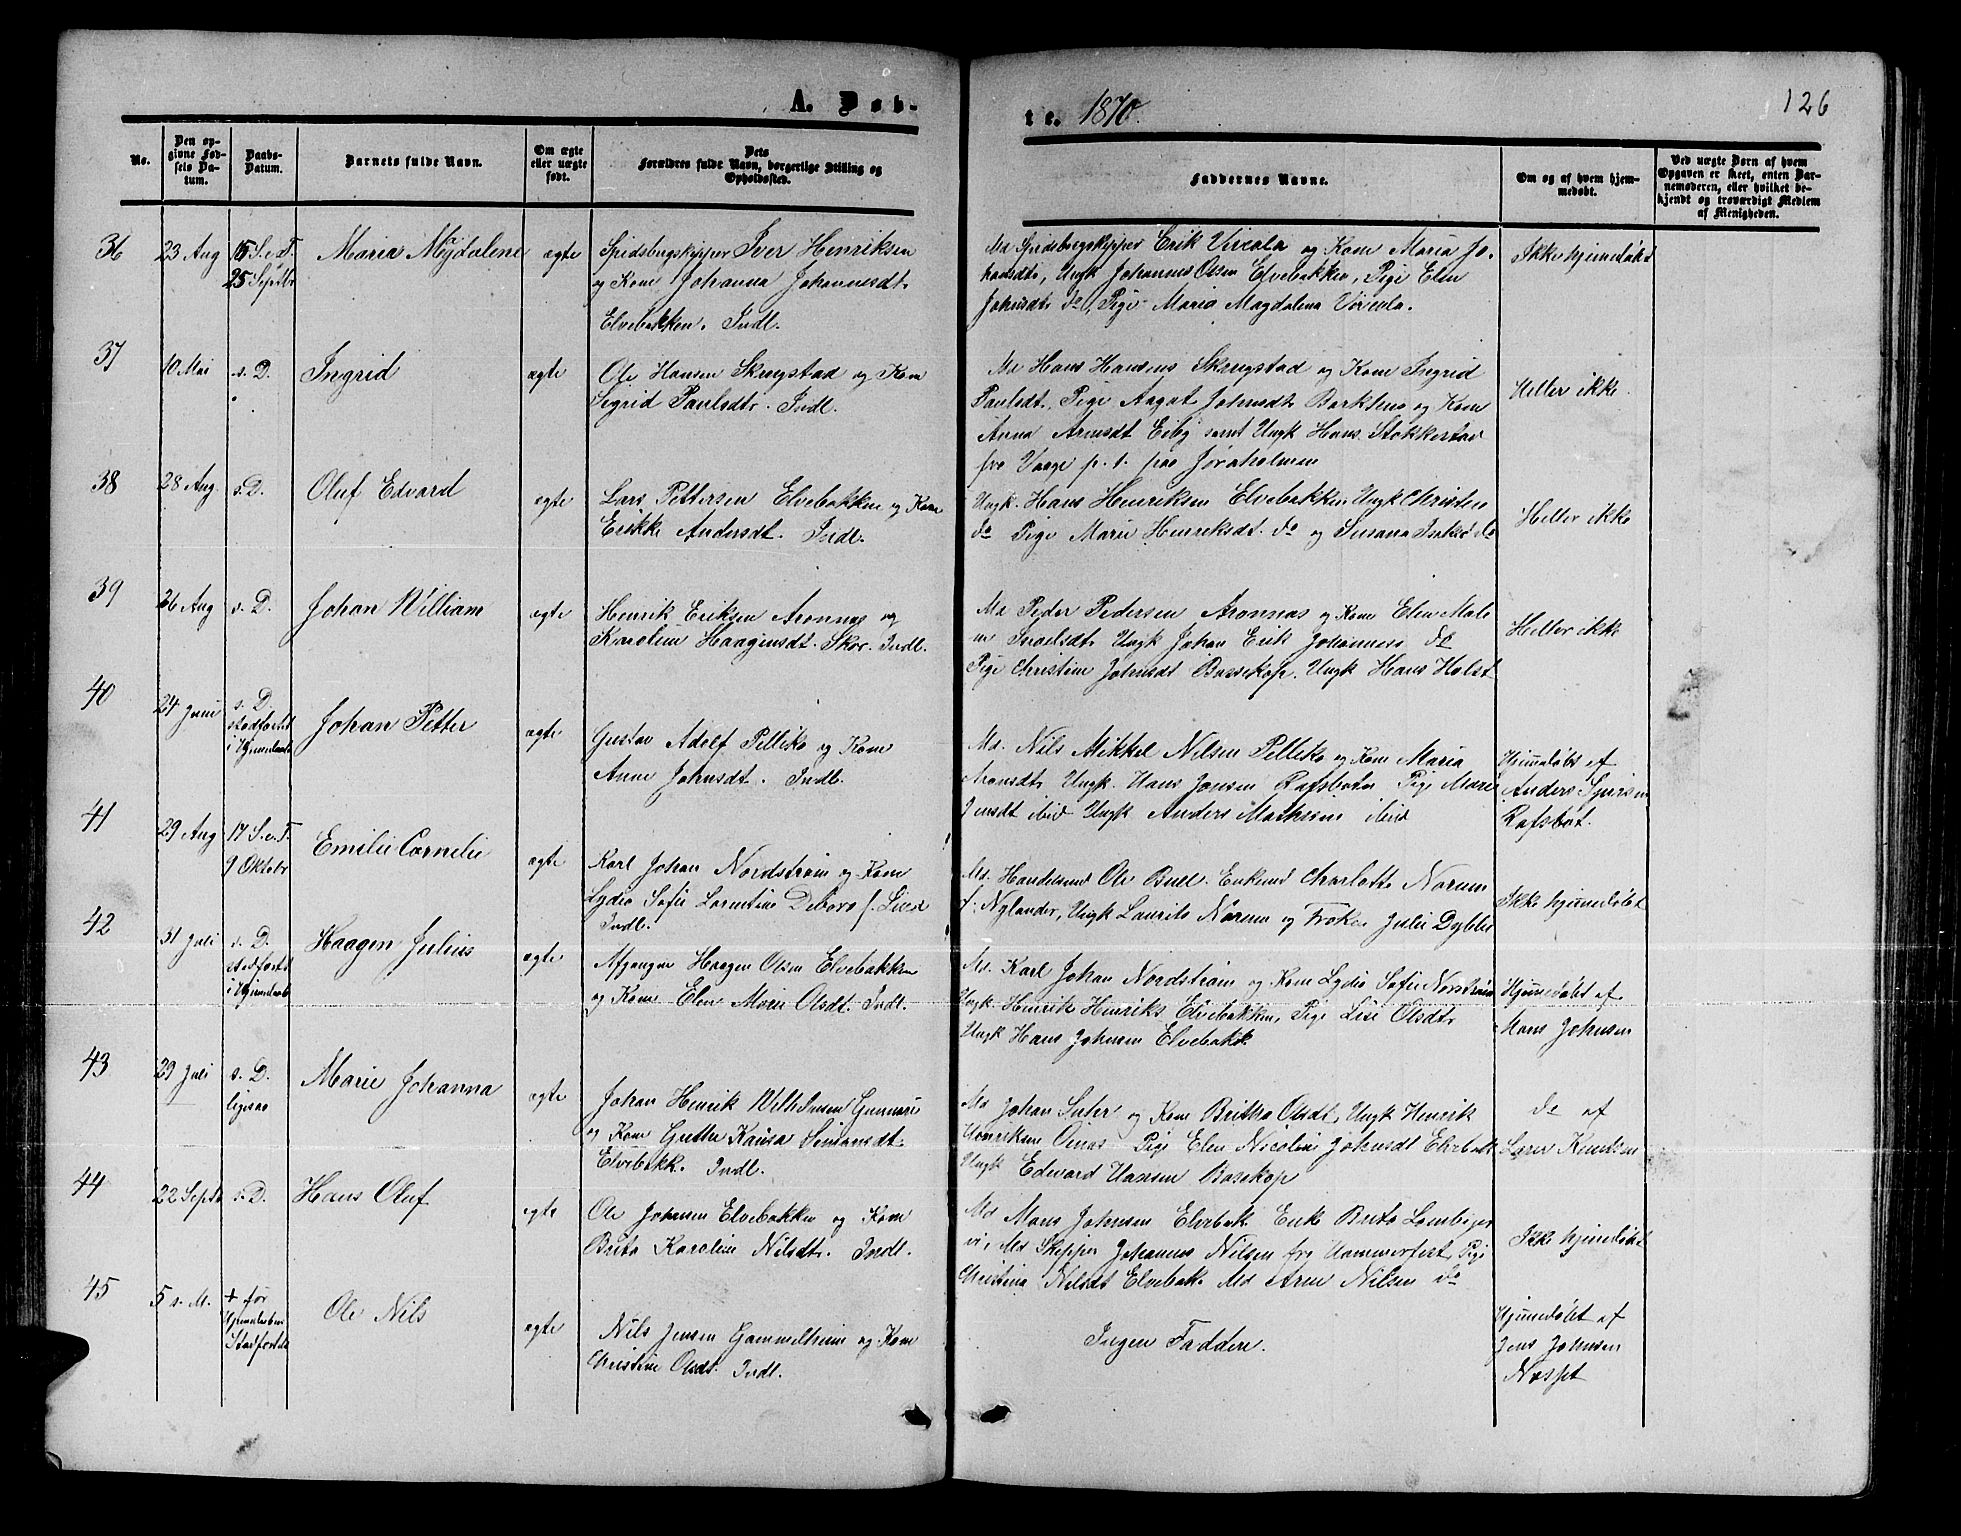 A. Døb-
te. 1870.
126
No.
Den op-
givne Fød-
sels Da-
tum.
Daabs-
Datum.
Barnets fulde Navn.
Om ægte
eller uægte
født.
Dets
Forældres fulde Navn, borgerlige Stilling og
Opholdssted.
Faddernes Navne.
Om og af hvem hjem-
medøbt.
Ved uægte Børn af hvem
Opgaven er skeet, enten Bar-
nemoderen, eller hvilket be-
kjendt og troværdigt Medlem
af Menigheden.
36
23 Aug
15 S.e.T.
25 Septbr
Maria Magdalene
ægte
Spidsbergskipper Iver Henriksen
og Kone Johanna Johannesdt.
Elvebakken. Indl.
Md Spidsbergskipper Erik Vircola og Kone Maria Jo-
hansdt, Ungk Johannes Olsen Elvebakken, Pige Elen
Johnsdt do, Pige Maria Magdalena Vircola.
Ikke hjemedøbt
37
10 Mai
s. D.
Ingrid
ægte
Ole Hansen Skrugstad og Kone
Sigrid Paulsdtr. Indl.
Md Hans Hansens Skrugstad og Kone Ingrid
Paulsdt, Pige Aagot Johnsdt og Kone
Anna Arnesdt Eiby samt Ungk Hans Stokkestad
fra Vaage p. t. paa Jøraholmen
Heller ikke
38
28 Aug.
s. D.
Oluf Edvard
ægte
Lars Pettersen Elvebakken og Kone
Erikke Andersdt. Indl.
Ungk. Hans Henriksen Elvebakken, Ungk Christen
do Pige Marie Henriksdt. do og Susana Isaks do
Heller ikke
39
26 Aug
s. D.
Johan William
ægte
Henrik Eriksen Aronnes og
Karoline Haagensdt. Skor. Indl.
Md Peder Pedersen Aronnas og Kone Elen Male
ne Israelsdt, Ungk Johan Erik Johannes do
Pige Christine Johnsdt Bossekop, Ungk Hans Holst
Heller ikke
40
24 Juni
s. D.
stadfæstet
i Hjemedaab
Johan Petter
ægte
Gustav Adolf Pelliko og Kone
Anne Johnsdt. Indl.
Md. Nils Mikkel Nilsen Pelliko og Kone Maria
Monsdt, Ungk. Hans Jonsen Rafsbotn Pige Marie
Jensdt ibid Ungk Anders Mathisen ibid
Hjemedøbt af
Anders
Rafsbot.
41
29 Aug
17 S.e.T.
9 Oktobr
Emilie Cornelie
ægte
Karl Johan Nordstrøm og Kone
Lydia Sofie Lorentine Debora f. Lied
Indl.
Md. Handelsmd Ole Bull. Enkemd Charlotte Norum
f: Nylander, Ungk Laurits Norum og Frøken Julie
Ikke hjemedøbt
42
31 Juli
s. D.
stadfæstet
i Hjemedaab
Haagen Julius
ægte
Afgangen Haagen Olsen Elvebakken
og Kone Elen Marie Olsdt. Indl.
Md. Karl Johan Nordstrøm og Kone Lydia Sofie Norstrøm
Ungk Henrik Henriks Elvebakken, Pige Lise Olsdt,
Ungk Hans Johnsen Elvebakk.
Hjemedøbt af
Mons Johnsen
43
29 Juli
s. D.
ligesaa
Marie Johanna
ægte
Johan Henrik Wilhelmsen
og Kone Grethe Kaisa Simonsdt.
Elvebakk. Indl.
Md Johan Suter og Kone Britha Olsdt, Ungk Henrik
Henriksen Pige Elen Nicoline Johnsdt Elvebak
Ungk Edvard Hansen Bosekop
do af
Lars Knutsen
44
22 Septb
s. D.
Hans Oluf
egte
Ole Johnsen Elvebakken og Kone
Brita Karoline Nilsdt. Indl.
Md Mons Johnsen Elvebak Enke Brita
vi, Md Skipper Johannes Nilsen fra Hammerfest, Pige
Christina Nilsdt Elvebak. Md Arne Nilsen do
Ikke hjemedøbt
45
5 s. M.
+ før
Hjemedaaben
Stadfæstet
Ole Nils
ægte
Nils Jensen Gammelheim og Kone
Christine Olsdt. Indl.
Ingen Faddere.
Hjemedøbt af
Jens Johnsen